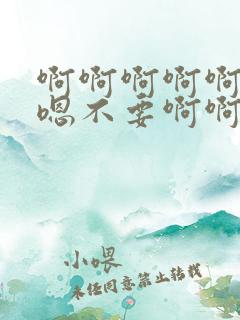 啊啊啊啊啊
嗯不要啊啊
小喂
未经同意禁止转载